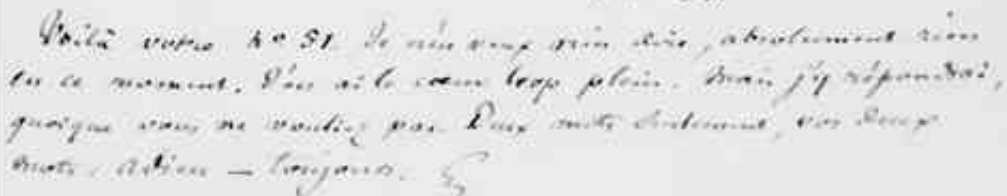 Voilà votre n° 51. Je n'en veux rien dire, absolument rien
en ce moment. J'en ai le cœur trop plein. Mais j'y répondrai,
quoique vous ne vouliez pas. Deux mots seulement, vos deux
mots. Adieu — toujours.